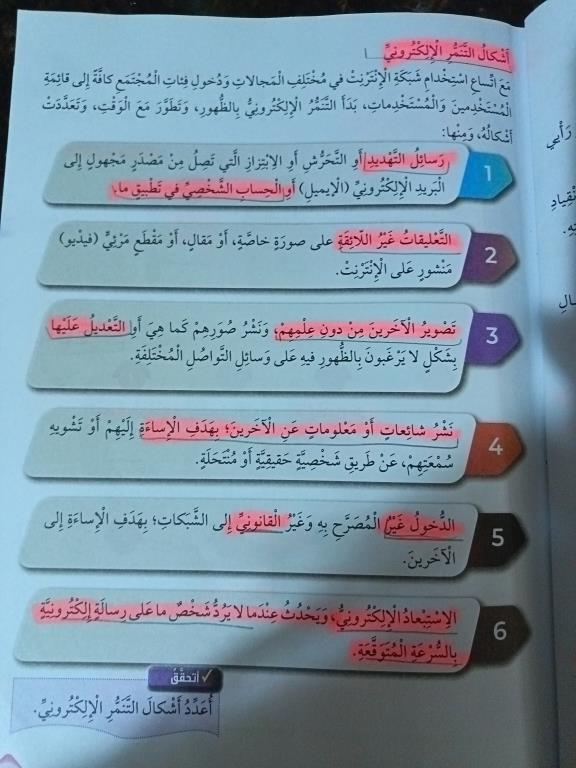 أَشْكالُ التَّنَمُّرِ الْإِلِكْتُرونِيِّ
مَعَ اتِّساعِ اسْتِخْدامِ شَبَكَةِ الْإِنْتَرْنِتْ في مُخْتَلِفِ الْمَجالاتِ وَدُخولِ فِئاتِ الْمُجْتَمَعِ كافَّةً إِلى قائِمَةِ
الْمُسْتَخْدِمينَ وَالْمُسْتَخْدِماتِ، بَدَأَ التَّنَمُّرُ الْإِلِكْتُرونِيُّ بِالظُّهورِ، وَتَطَوَّرَ مَعَ الْوَقْتِ، وَتَعَدَّدَتْ
أَشْكالُهُ، وَمِنْها:
1
رَسائِلُ التَّهْديدِ أَوِ التَّحَرُّشِ أَوِ الِابْتِزازِ الَّتي تَصِلُ مِنْ مَصْدَرٍ مَجْهولٍ إِلى
الْبَريدِ الْإِلِكْتُرونِيِّ (الْإيميلِ) أَوِ الْحِسابِ الشَّخْصِيِّ في تَطْبيقٍ ما.
2
التَّعْليقاتُ غَيْرُ اللّائِقَةِ عَلى صورَةٍ خاصَّةٍ، أَوْ مَقالٍ، أَوْ مَقْطَعٍ مَرْئِيٍّ (فيدْيو)
مَنْشورٍ عَلى الْإِنْتَرْنِتْ.
3
تَصْويرُ الْآخَرينَ مِنْ دونِ عِلْمِهِمْ، وَنَشْرُ صُوَرِهِمْ كَما هِيَ أَوِ التَّعْديلُ عَلَيْها
بِشَكْلٍ لا يَرْغَبونَ بِالظُّهورِ فيهِ عَلى وَسائِلِ التَّواصُلِ الْمُخْتَلِفَةِ.
4
نَشْرُ شائِعاتٍ أَوْ مَعْلوماتٍ عَنِ الْآخَرينَ؛ بِهَدَفِ الْإِساءَةِ إِلَيْهِمْ أَوْ تَشْويهِ
سُمْعَتِهِمْ، عَنْ طَريقِ شَخْصِيَّةٍ حَقيقِيَّةٍ أَوْ مُنْتَحَلَةٍ.
5
الدُّخولُ غَيْرُ الْمُصَرَّحِ بِهِ وَغَيْرُ الْقانونِيِّ إِلى الشَّبَكاتِ؛ بِهَدَفِ الْإِساءَةِ إِلى
الْآخَرينَ.
6
الِاسْتِبْعادُ الْإِلِكْتُرونِيُّ، وَيَحْدُثُ عِنْدَما لا يَرُدُّ شَخْصٌ ما عَلى رِسالَةٍ إِلِكْتُرونِيَّةٍ
بِالسُّرْعَةِ الْمُتَوَقَّعَةِ.
أتحقَّقُ
أُعَدِّدُ أَشْكالَ التَّنَمُّرِ الْإِلِكْتُرونِيِّ.
رَأْيي